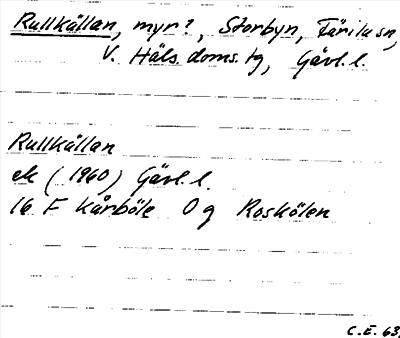 Rullkällan, myr?, Storbyn, Färila sn,
V. Häls. doms. tg, Gävl. l.
Rullkällan
ek (1960) Gävl. l.
16 F Kårböle 0 g Roskölen
C.E. 63.